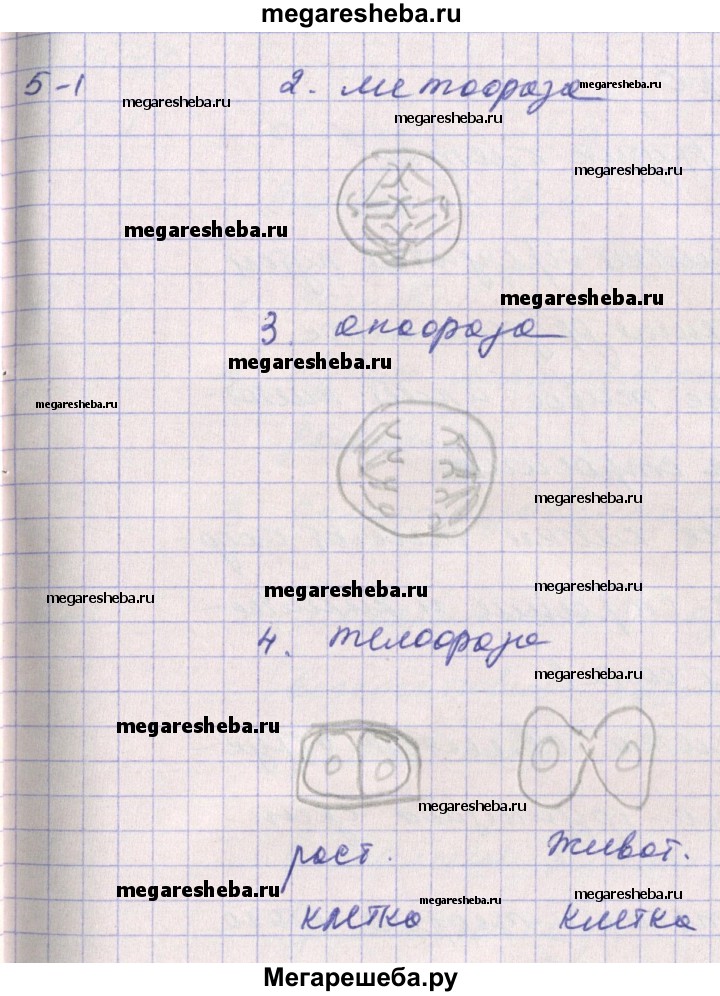 megaresheba.ru
5-1
2. метофаза
megaresheba.ru
megaresheba.ru
megaresheba.ru
megaresheba.ru
megaresheba.ru
megaresheba.ru
3. анафаза
megaresheba.ru
megaresheba.ru
megaresheba.ru
megaresheba.ru
megaresheba.ru
megaresheba.ru
4. телофаза
megaresheba.ru
megaresheba.ru
megaresheba.ru
раст. живот.
megaresheba.ru
megaresheba.ru
megaresheba.ru
клетка клетка
Мегарешеба.ру